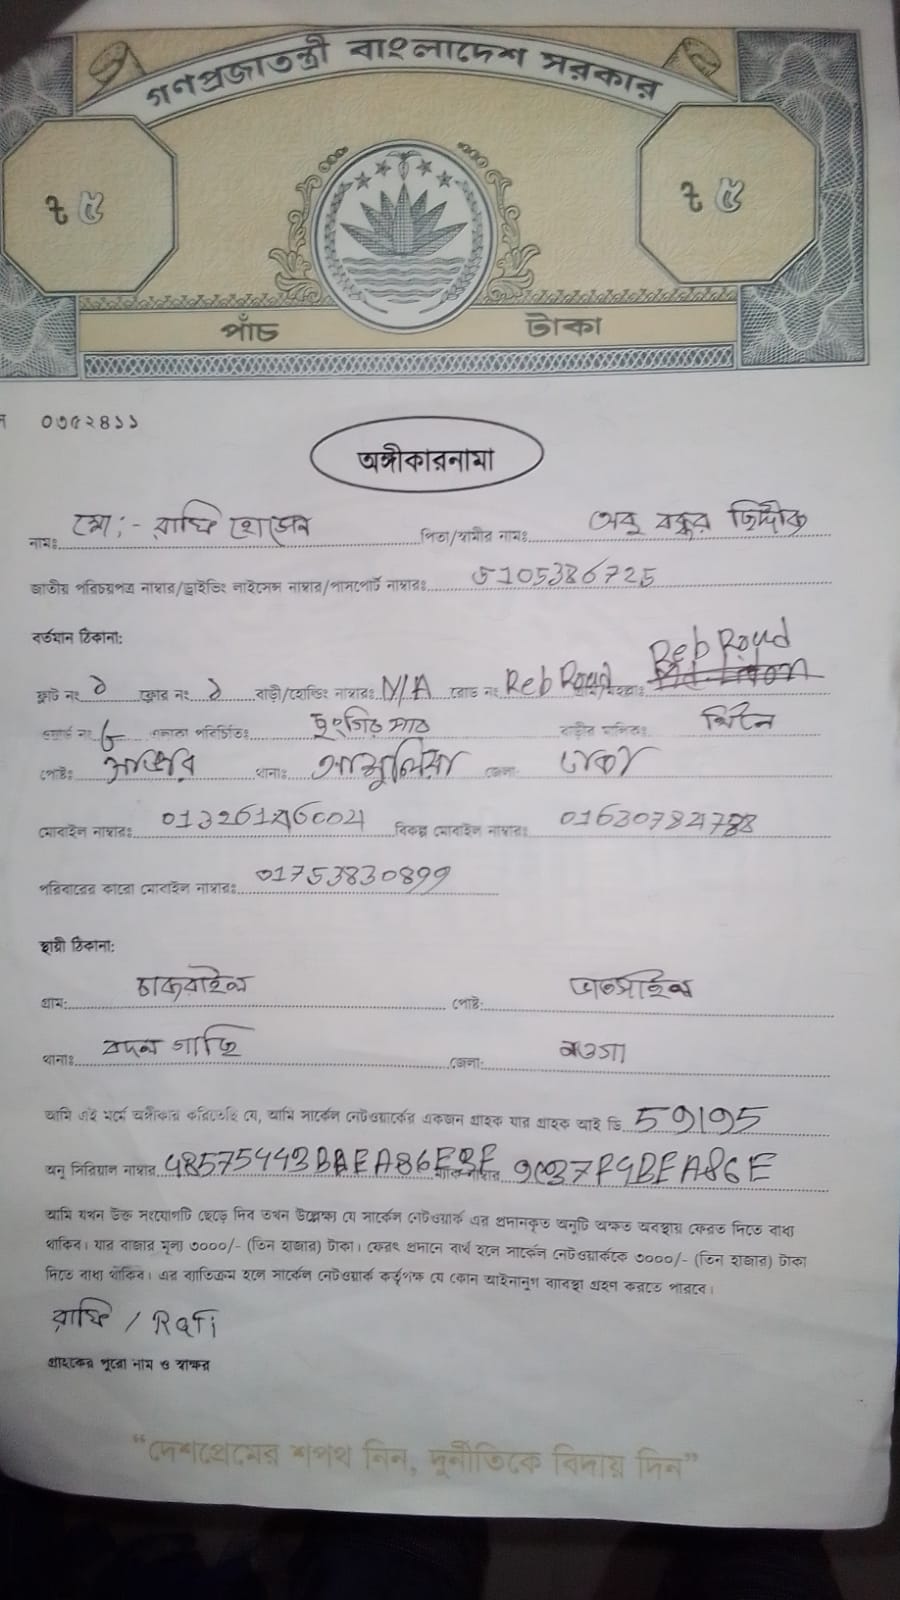 গণপ্রজাতন্ত্রী বাংলাদেশ সরকার
ট ৫ ট ৫
পাঁচ টাকা
০৩৫২৪১১
অঙ্গীকারনামা
নামঃ মো:- রাফি হোসেন পিতা/স্বামীর নামঃ আবু বক্কর ছিদ্দীক
জাতীয় পরিচয়পত্র নাম্বার/ড্রাইভিং লাইসেন্স নাম্বার/পাসপোর্ট নাম্বারঃ 5105386725
বর্তমান ঠিকানা:
ফ্লাট নং ১ ফ্লোর নং ১ বাড়ী/হোল্ডিং নাম্বারঃ N/A রোড নং Reb Road Reb Road
ওয়ার্ড নং 6 এলাকা পরিচিতিঃ বাড়ীর মালিকঃ
পোষ্টঃ সাভার থানাঃ আশুলিয়া জেলা ঢাকা
মোবাইল নাম্বারঃ বিকল্প মোবাইল নাম্বারঃ
পরিবারের কারো মোবাইল নাম্বারঃ 01753830899
স্থায়ী ঠিকানা:
গ্রাম: চাকরাইল পোষ্ট: ভাতসাইল
থানাঃ বদল গাছি জেলা: নওগা
আমি এই মর্মে অঙ্গীকার করিতেছি যে, আমি সার্কেল নেটওয়ার্কের একজন গ্রাহক যার গ্রাহক আই ডি 59195
অনু সিরিয়াল নাম্বার ম্যাক নাম্বার 9C37F4BEA86E
আমি যখন উক্ত সংযোগটি ছেড়ে দিব তখন উল্লেক্ষ্য যে সার্কেল নেটওয়ার্ক এর প্রদানকৃত অনুটি অক্ষত অবস্থায় ফেরত দিতে বাধ্য
থাকিব। যার বাজার মূল্য ৩০০০/- (তিন হাজার) টাকা। ফেরৎ প্রদানে ব্যর্থ হলে সার্কেল নেটওয়ার্ককে ৩০০০/- (তিন হাজার) টাকা
দিতে বাধ্য থাকিব। এর ব্যতিক্রম হলে সার্কেল নেটওয়ার্ক কর্তৃপক্ষ যে কোন আইনানুগ ব্যাবস্থা গ্রহণ করতে পারবে।
রাফি / Rafi
গ্রাহকের পুরো নাম ও স্বাক্ষর
“দেশপ্রেমের শপথ নিন, দুর্নীতিকে বিদায় দিন”